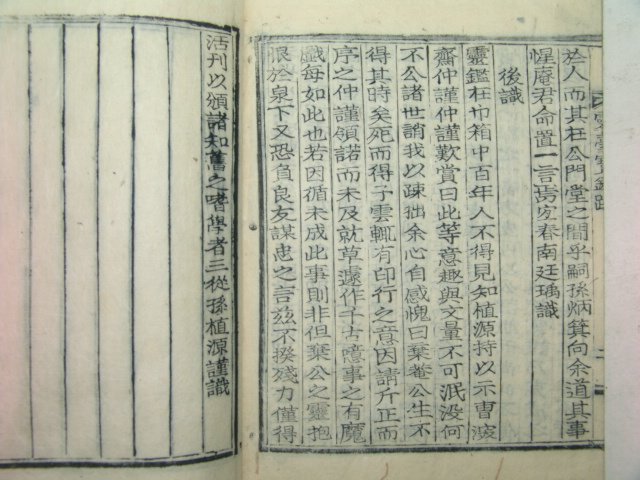 於人而其在公門堂之間乎嗣孫炳箕向余道其事
惺庵君命置一言焉宜春南廷瑀識
後識
靈鑑在巾箱中百年人不得見知植源持以示曺深
齋仲謹仲謹歎賞曰此等意趣與文量不可泯没何
不公諸世誚我以疎拙余心自感愧曰棄菴公生不
得其時矣死而得子雲輒有印行之意因請斤正而
序之仲謹領諾而未及就草遽作千古噫事之有魔
戱每如此也若因循未成此事則非但棄公之靈抱
恨於泉下又恐自良友謀忠之言玆不揆殘力僅得
活刊以頒諸知舊之嗜學者三從孫植源謹識